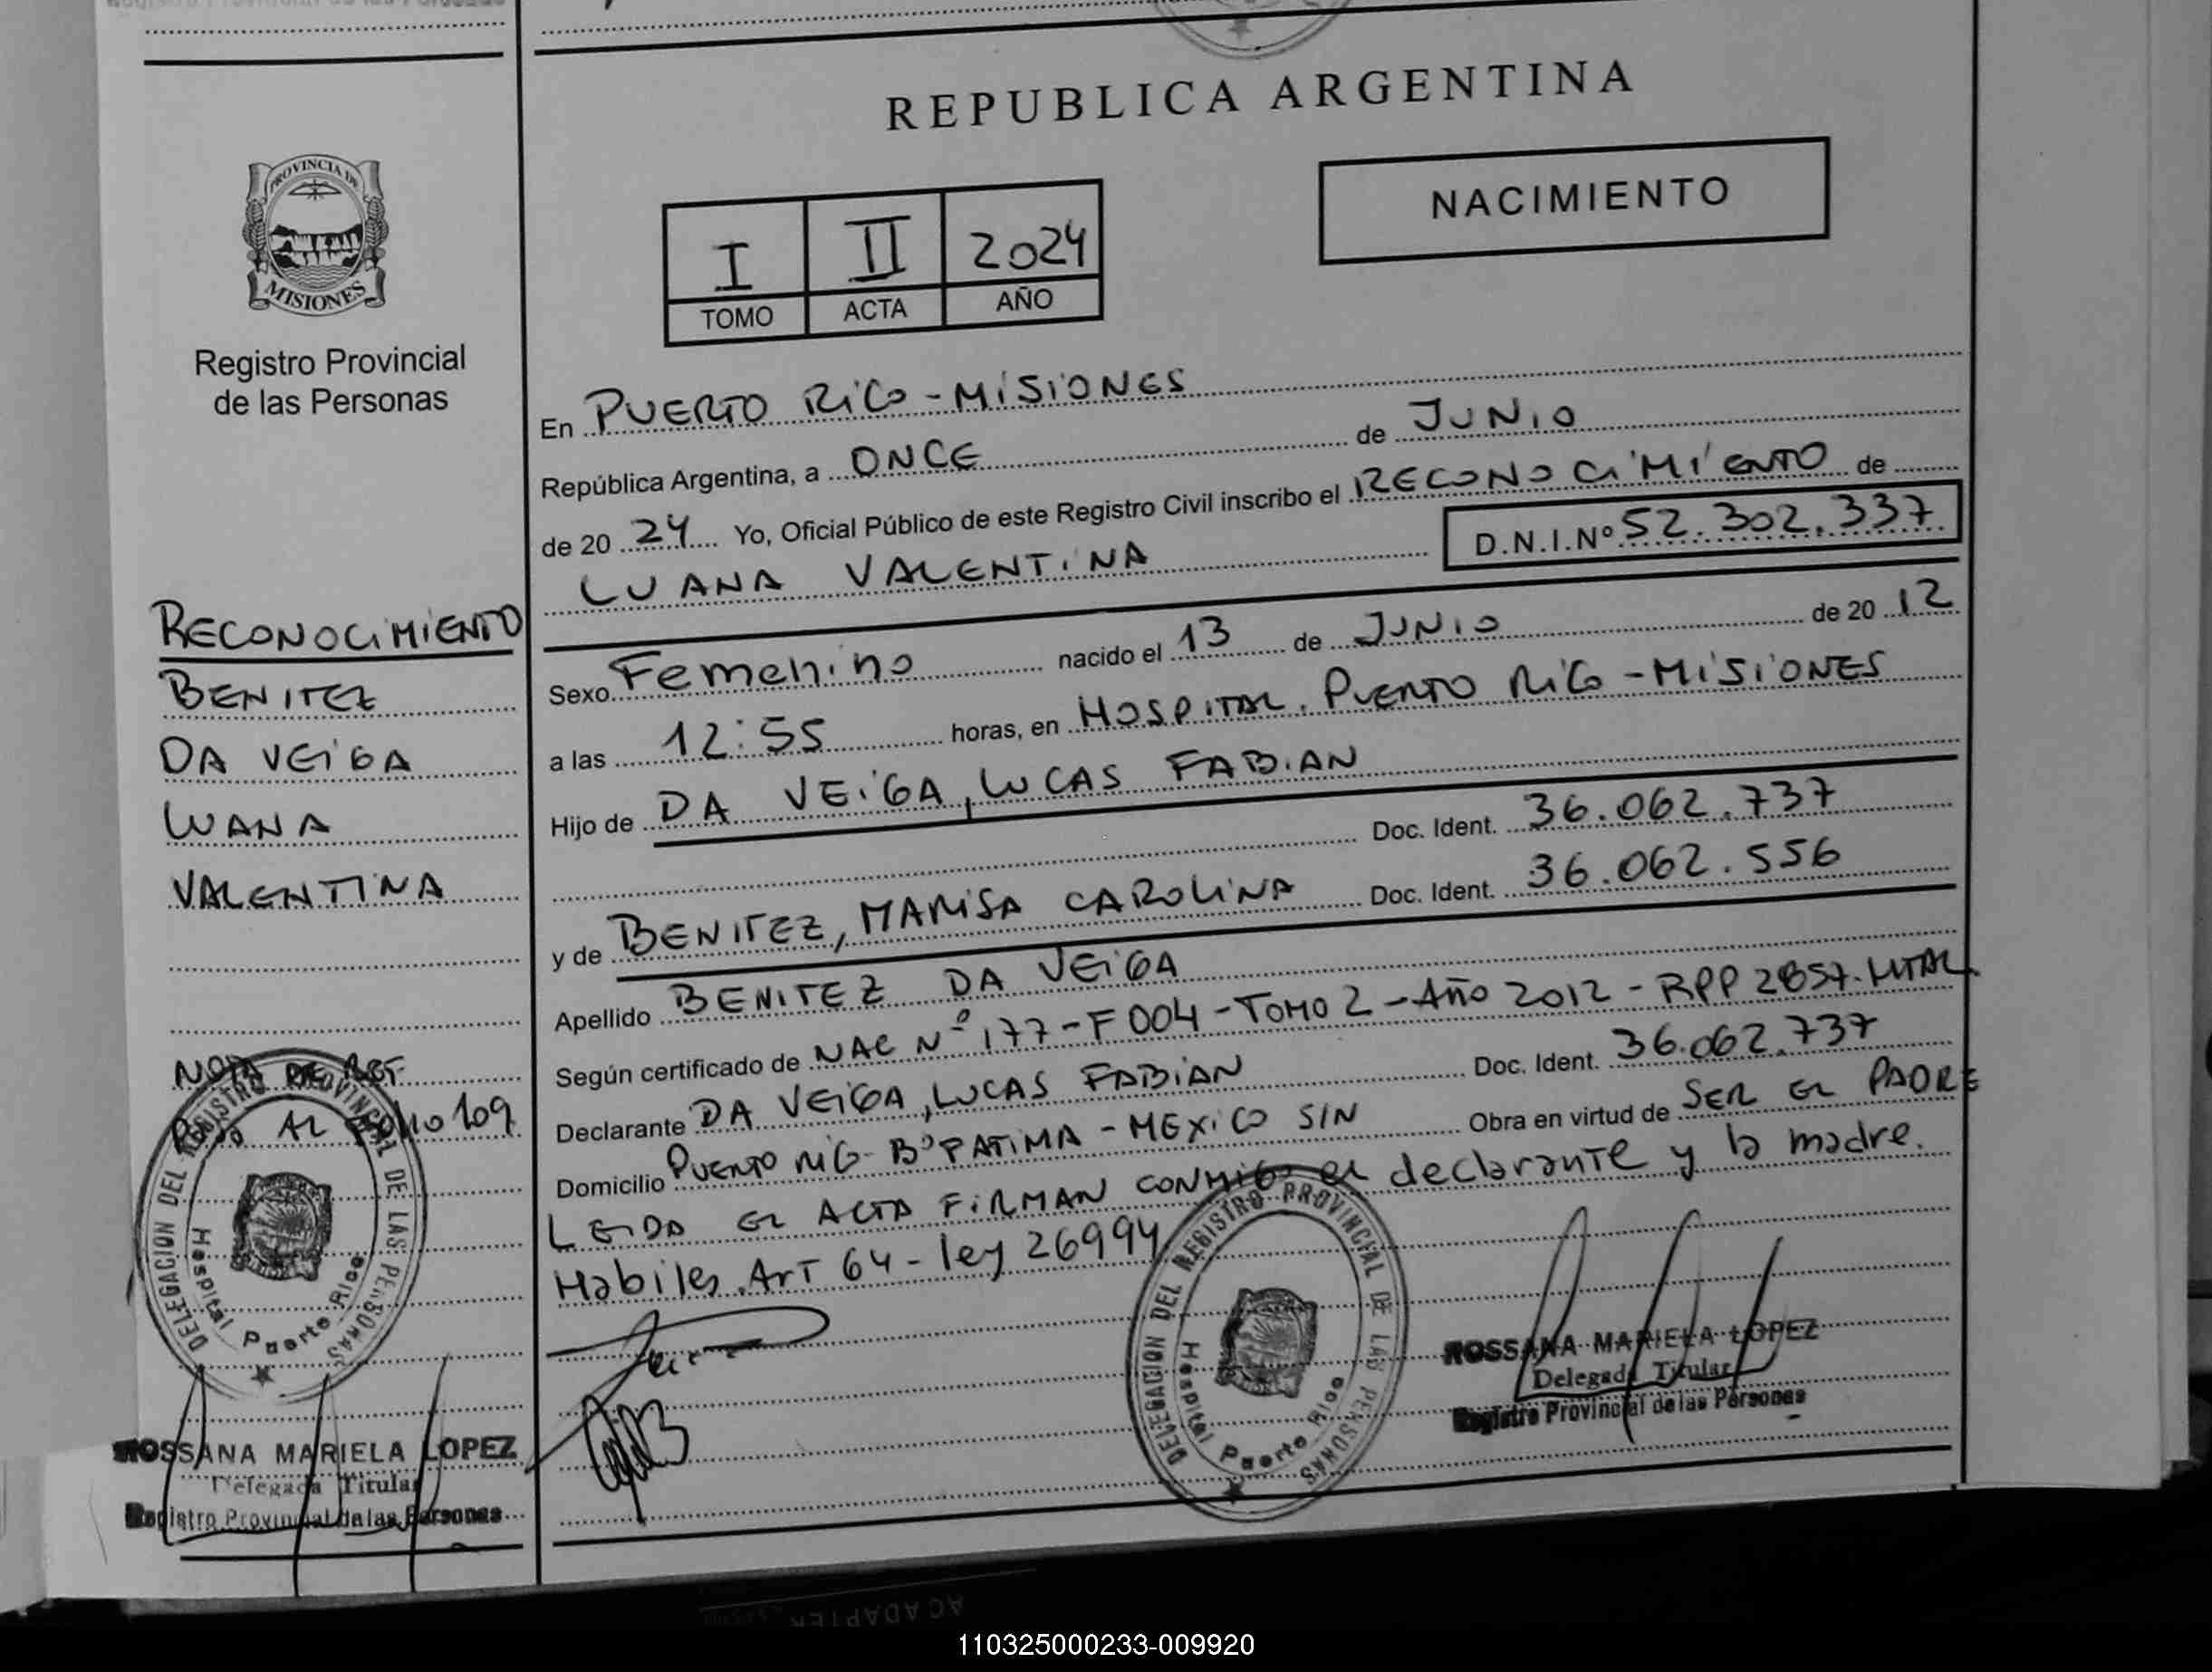 REPUBLICA ARGENTINA
NACIMIENTO
I II 2024
TOMO ACTA AÑO
PROVINCIA DE
MISIONES
Registro Provincial
de las Personas
RECONOCIMIENTO
BENITEZ
DA VEIGA
LUANA
VALENTINA
NOTA DE REF.
AL Folio 109
DELEGACION DEL REGISTRO PROVINCIAL DE LAS PERSONAS
Hospital Puerto Rico
ROSSANA MARIELA LOPEZ
Delegada Titular
Registro Provincial de las Personas
En PUERTO RICO - MISIONES
República Argentina, a ONCE de JUNIO
de 20 24 Yo, Oficial Público de este Registro Civil inscribo el RECONOCIMIENTO de
LUANA VALENTINA D.N.I.Nº 52.302.337
Sexo Femenino nacido el 13 de JUNIO de 20 12
a las 12:55 horas, en HOSPITAL. PUERTO RICO - MISIONES
Hijo de DA VEIGA, LUCAS FABIAN
Doc. Ident. 36.062.737
y de BENITEZ, MARISA CAROLINA Doc. Ident. 36.062.556
Apellido BENITEZ DA VEIGA
Según certificado de NAC Nº 177 - F 004 - TOMO 2 - AÑO 2012 - RPP 2857.
Declarante DA VEIGA, LUCAS FABIAN Doc. Ident. 36.062.737
Domicilio PUERTO RICO - Bº FATIMA - MEXICO S/N Obra en virtud de SER EL PADRE
LEIDA EL ACTA FIRMAN CONMIGO el declarante y la madre.
Habiles. Art 64 - ley 26994
DELEGACION DEL REGISTRO PROVINCIAL DE LAS PERSONAS
Hospital Puerto Rico
ROSSANA MARIELA LOPEZ
Delegada Titular
Registro Provincial de las Personas
AC ADAPTER
110325000233-009920